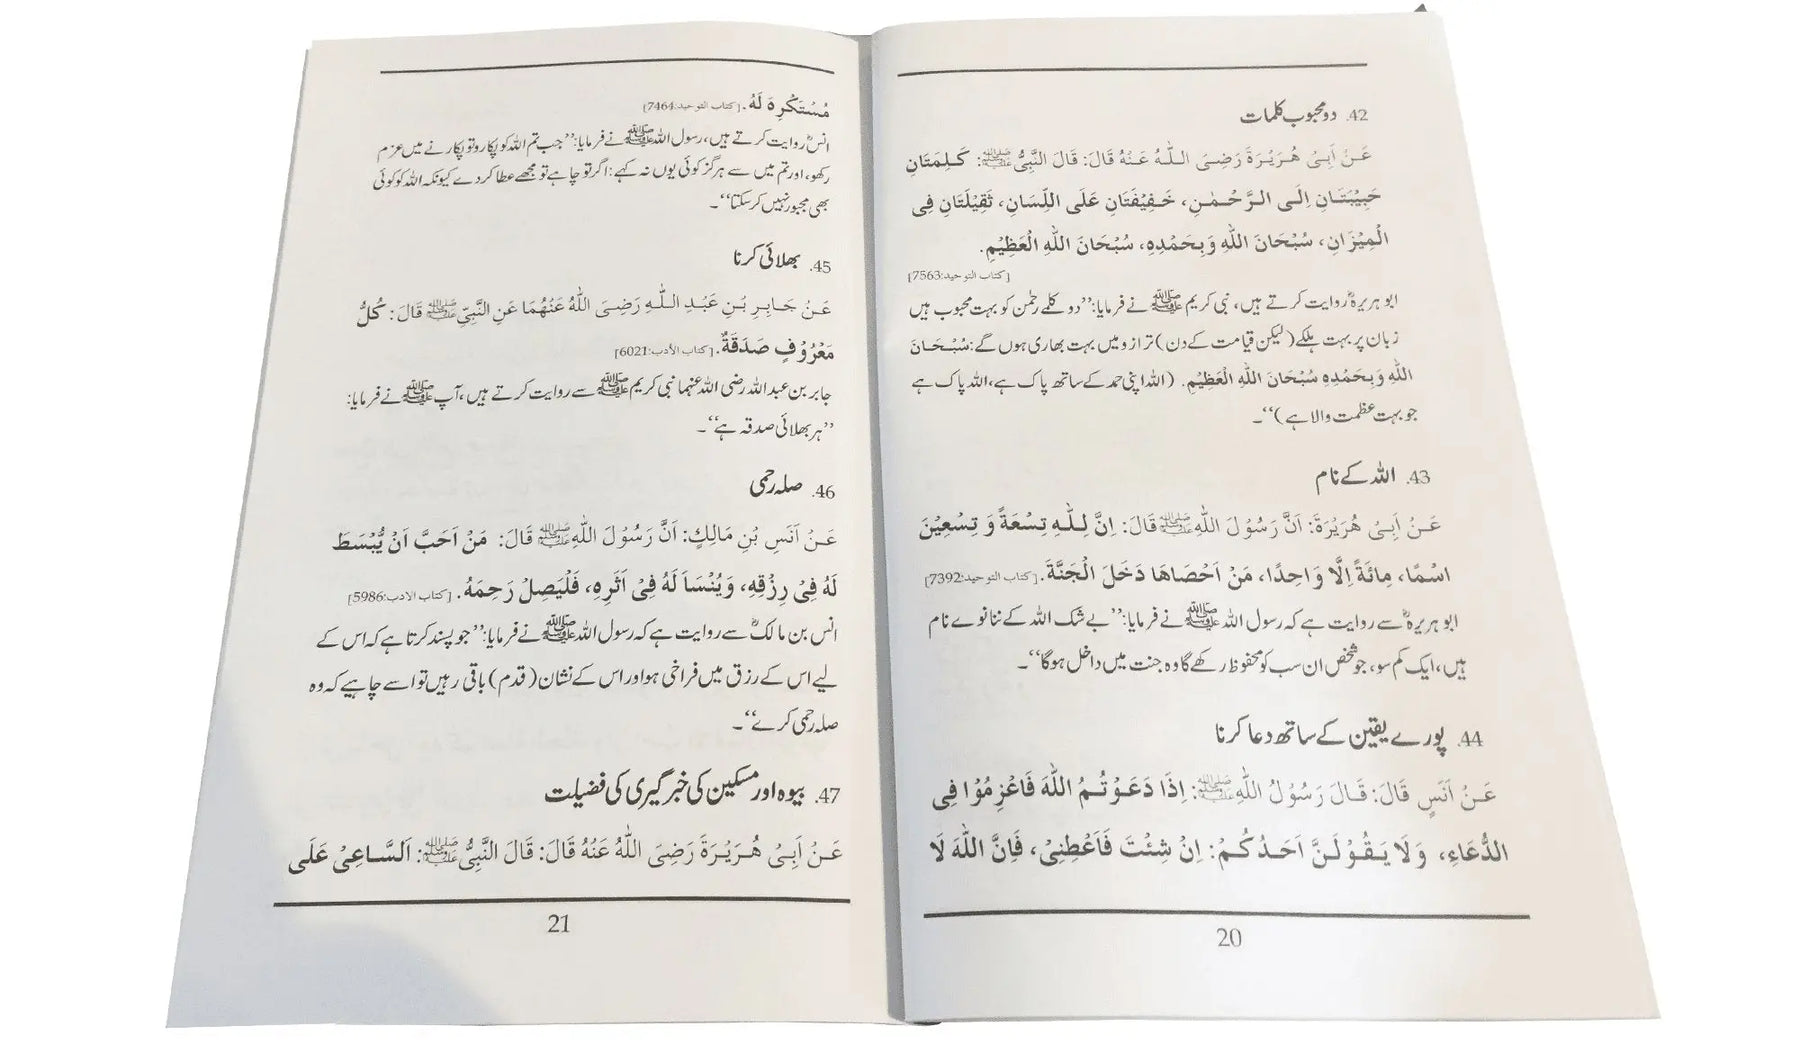 42. دو محبوب کلمات
عَنْ اَبِیْ هُرَیْرَةَ رَضِیَ اللّٰهُ عَنْهُ قَالَ: قَالَ النَّبِیُّ ﷺ: كَلِمَتَانِ
حَبِیْبَتَانِ اِلَی الرَّحْمٰنِ، خَفِیْفَتَانِ عَلَی اللِّسَانِ، ثَقِیْلَتَانِ فِی
الْمِیْزَانِ، سُبْحَانَ اللّٰهِ وَبِحَمْدِهِ، سُبْحَانَ اللّٰهِ الْعَظِیْمِ.
[كتاب التوحید:7563]
ابو ہریرہؓ روایت کرتے ہیں، نبی کریم ﷺ نے فرمایا: ’’دو کلمے رحمٰن کو بہت محبوب ہیں
زبان پر بہت ہلکے (لیکن قیامت کے دن) ترازو میں بہت بھاری ہوں گے: سُبْحَانَ
اللّٰهِ وَبِحَمْدِهِ سُبْحَانَ اللّٰهِ الْعَظِیْمِ. (اللہ اپنی حمد کے ساتھ پاک ہے، اللہ پاک ہے
جو بہت عظمت والا ہے)‘‘۔
43. اللہ کے نام
عَنْ اَبِیْ هُرَیْرَةَ: اَنَّ رَسُوْلَ اللّٰهِ ﷺ قَالَ: اِنَّ لِلّٰهِ تِسْعَةً وَ تِسْعِیْنَ
اسْمًا، مِائَةً اِلَّا وَاحِدًا، مَنْ اَحْصَاهَا دَخَلَ الْجَنَّةَ. [كتاب التوحید:7392]
ابو ہریرہؓ سے روایت ہے کہ رسول اللہ ﷺ نے فرمایا: ’’بے شک اللہ کے ننانوے نام
ہیں، ایک کم سو، جو شخص ان سب کو محفوظ رکھے گا وہ جنت میں داخل ہوگا‘‘۔
44. پورے یقین کے ساتھ دعا کرنا
عَنْ اَنَسٍ قَالَ: قَالَ رَسُوْلُ اللّٰهِ ﷺ: اِذَا دَعَوْتُمُ اللّٰهَ فَاعْزِمُوْا فِی
الدُّعَاءِ، وَلَا یَقُوْلَنَّ اَحَدُكُمْ: اِنْ شِئْتَ فَاَعْطِنِیْ، فَاِنَّ اللّٰهَ لَا
20
مُسْتَكْرِهَ لَهُ. [كتاب التوحید:7464]
انسؓ روایت کرتے ہیں، رسول اللہ ﷺ نے فرمایا: ’’جب تم اللہ کو پکارو تو پکارنے میں عزم
رکھو، اور تم میں سے ہرگز کوئی یوں نہ کہے: اگر تو چاہے تو مجھے عطا کر دے کیونکہ اللہ کو کوئی
بھی مجبور نہیں کر سکتا‘‘۔
45. بھلائی کرنا
عَنْ جَابِرِ بْنِ عَبْدِ اللّٰهِ رَضِیَ اللّٰهُ عَنْهُمَا عَنِ النَّبِیِّ ﷺ قَالَ: كُلُّ
مَعْرُوْفٍ صَدَقَةٌ. [كتاب الأدب:6021]
جابر بن عبد اللہ رضی اللہ عنہما نبی کریم ﷺ سے روایت کرتے ہیں، آپ ﷺ نے فرمایا:
’’ہر بھلائی صدقہ ہے‘‘۔
46. صلہ رحمی
عَنْ اَنَسِ بْنِ مَالِكٍ: اَنَّ رَسُوْلَ اللّٰهِ ﷺ قَالَ: مَنْ اَحَبَّ اَنْ یُّبْسَطَ
لَهُ فِیْ رِزْقِهِ، وَیُنْسَاَ لَهُ فِیْ اَثَرِهِ، فَلْیَصِلْ رَحِمَهُ. [كتاب الادب:5986]
انس بن مالکؓ سے روایت ہے کہ رسول اللہ ﷺ نے فرمایا: ’’جو پسند کرتا ہے کہ اس کے
لیے اس کے رزق میں فراخی ہو اور اس کے نشان (قدم) باقی رہیں تو اسے چاہیے کہ وہ
صلہ رحمی کرے‘‘۔
47. بیوہ اور مسکین کی خبر گیری کی فضیلت
عَنْ اَبِیْ هُرَیْرَةَ رَضِیَ اللّٰهُ عَنْهُ قَالَ: قَالَ النَّبِیُّ ﷺ: اَلسَّاعِیْ عَلَی
21